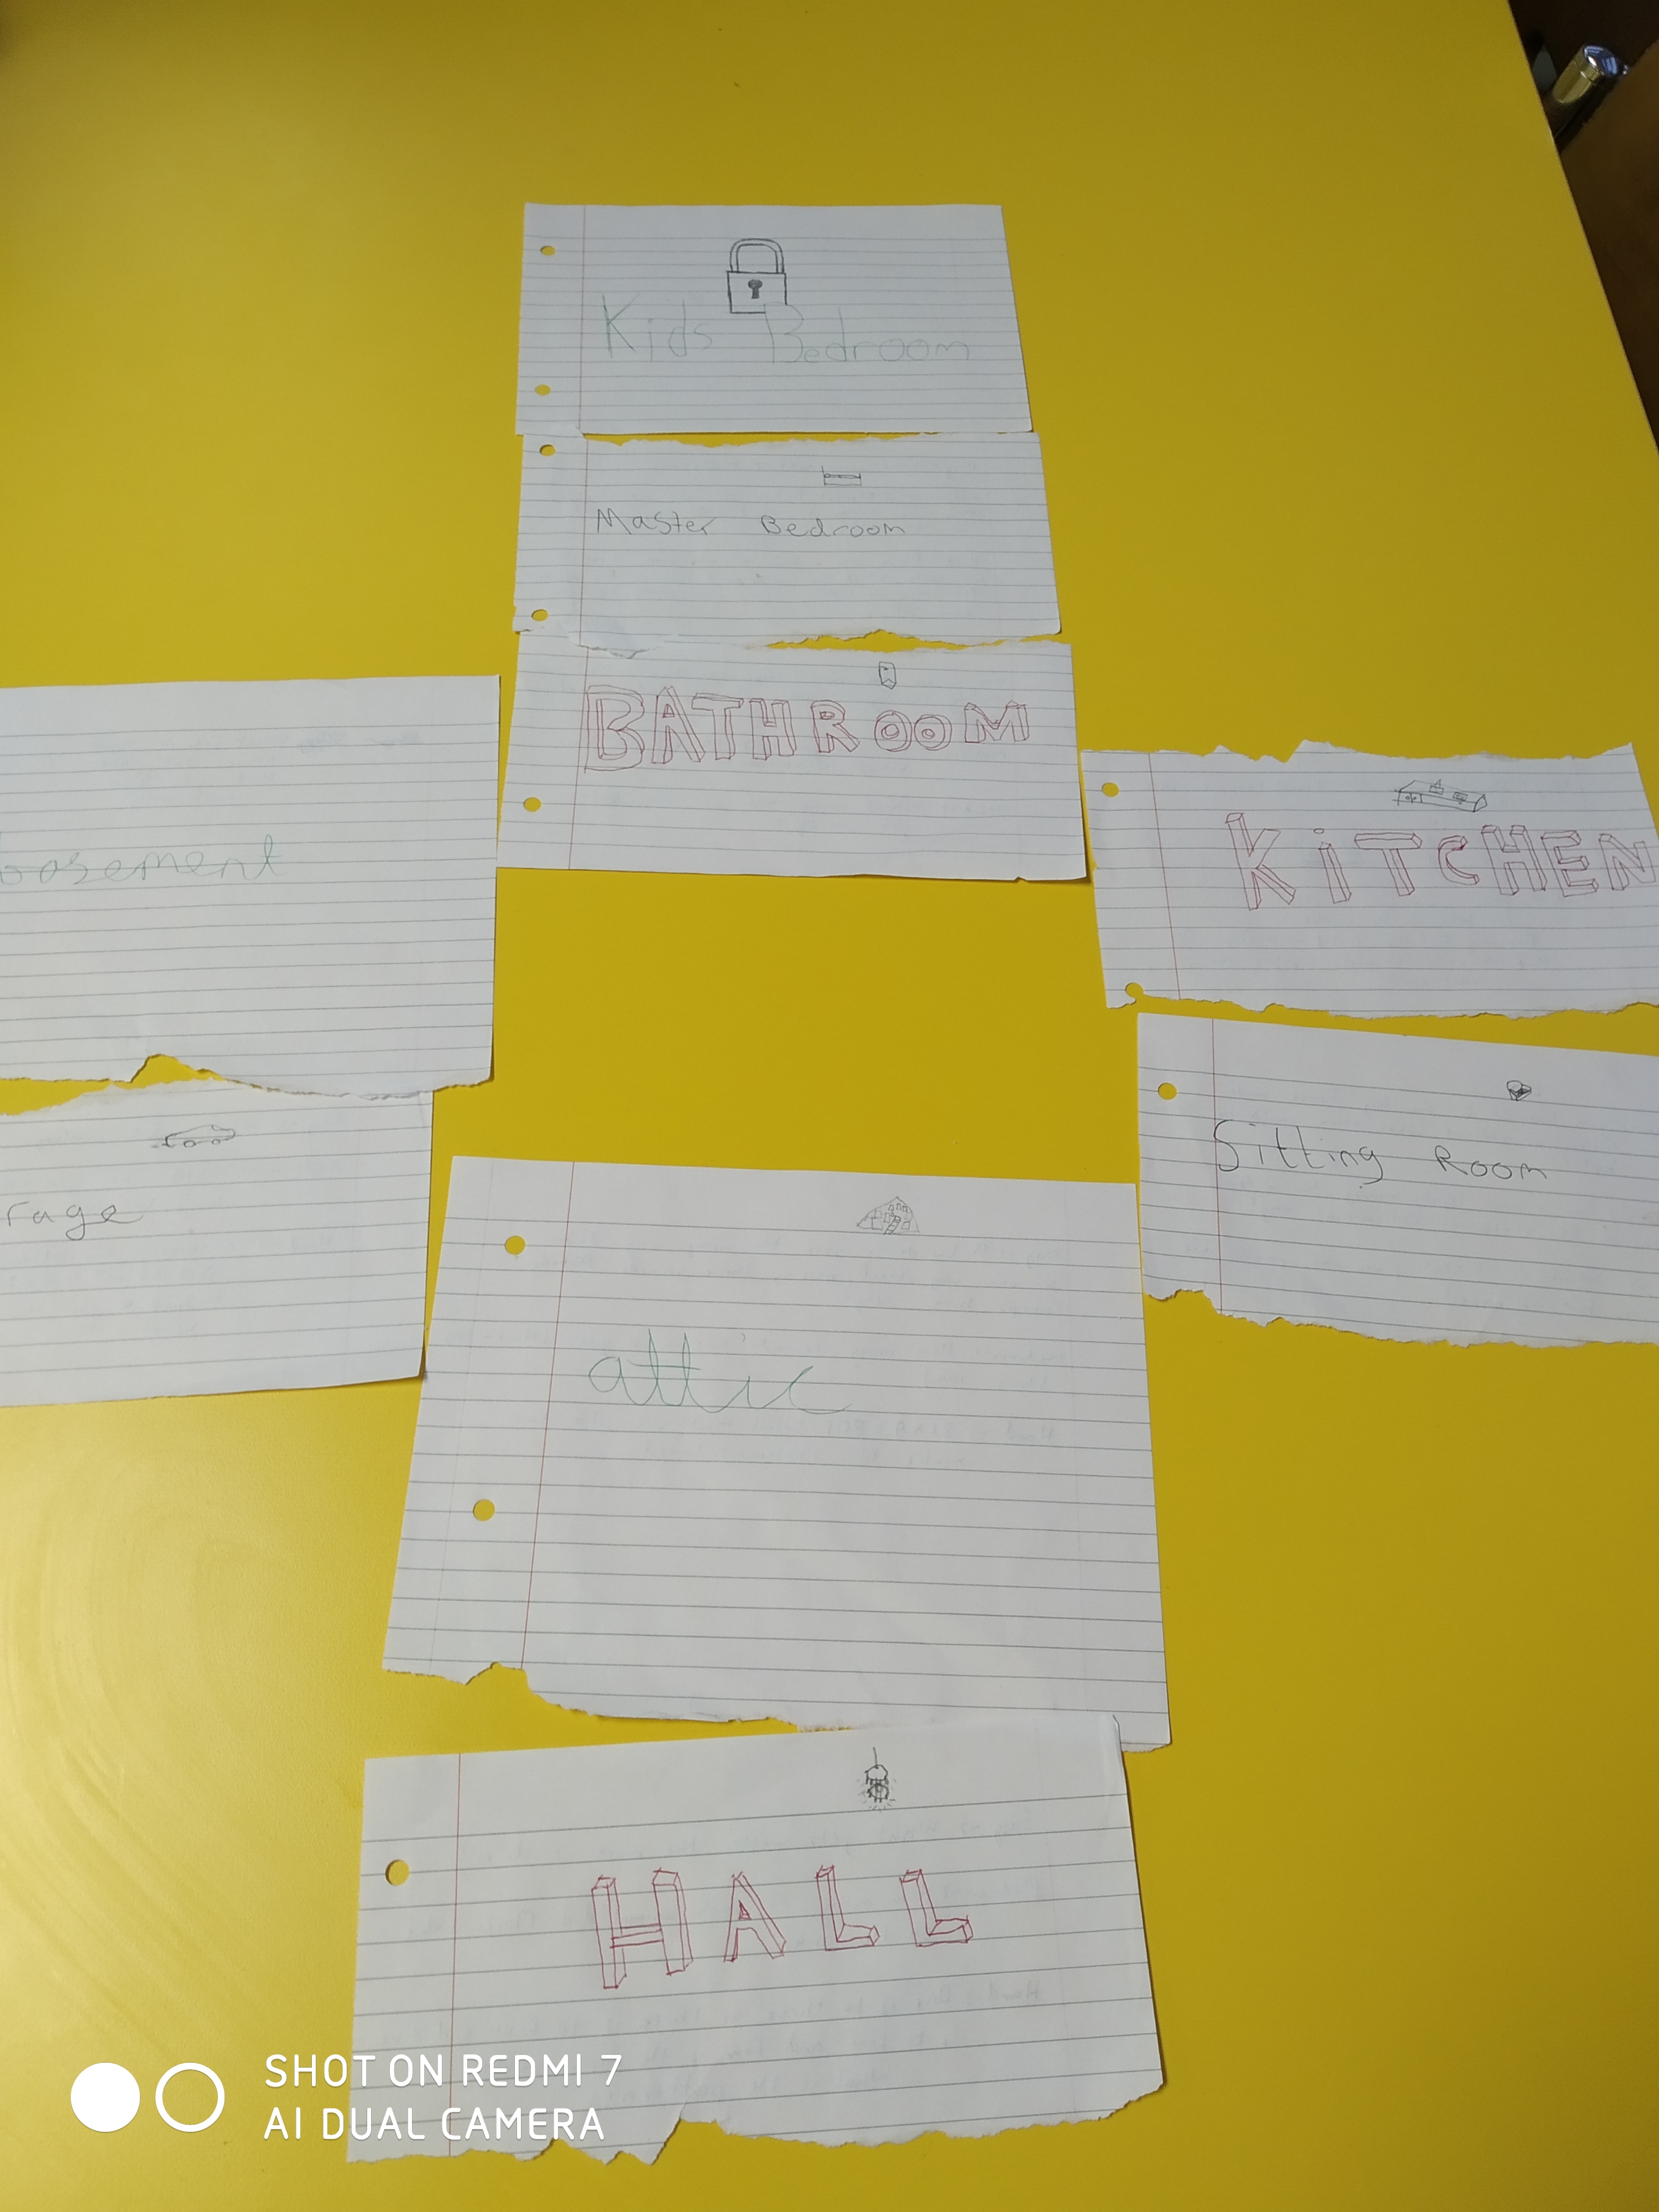 Kids Bedroom
Master Bedroom
BATHROOM
basement
KiTCHEN
Sitting Room
rage
attic
HALL
SHOT ON REDMI 7
AI DUAL CAMERA